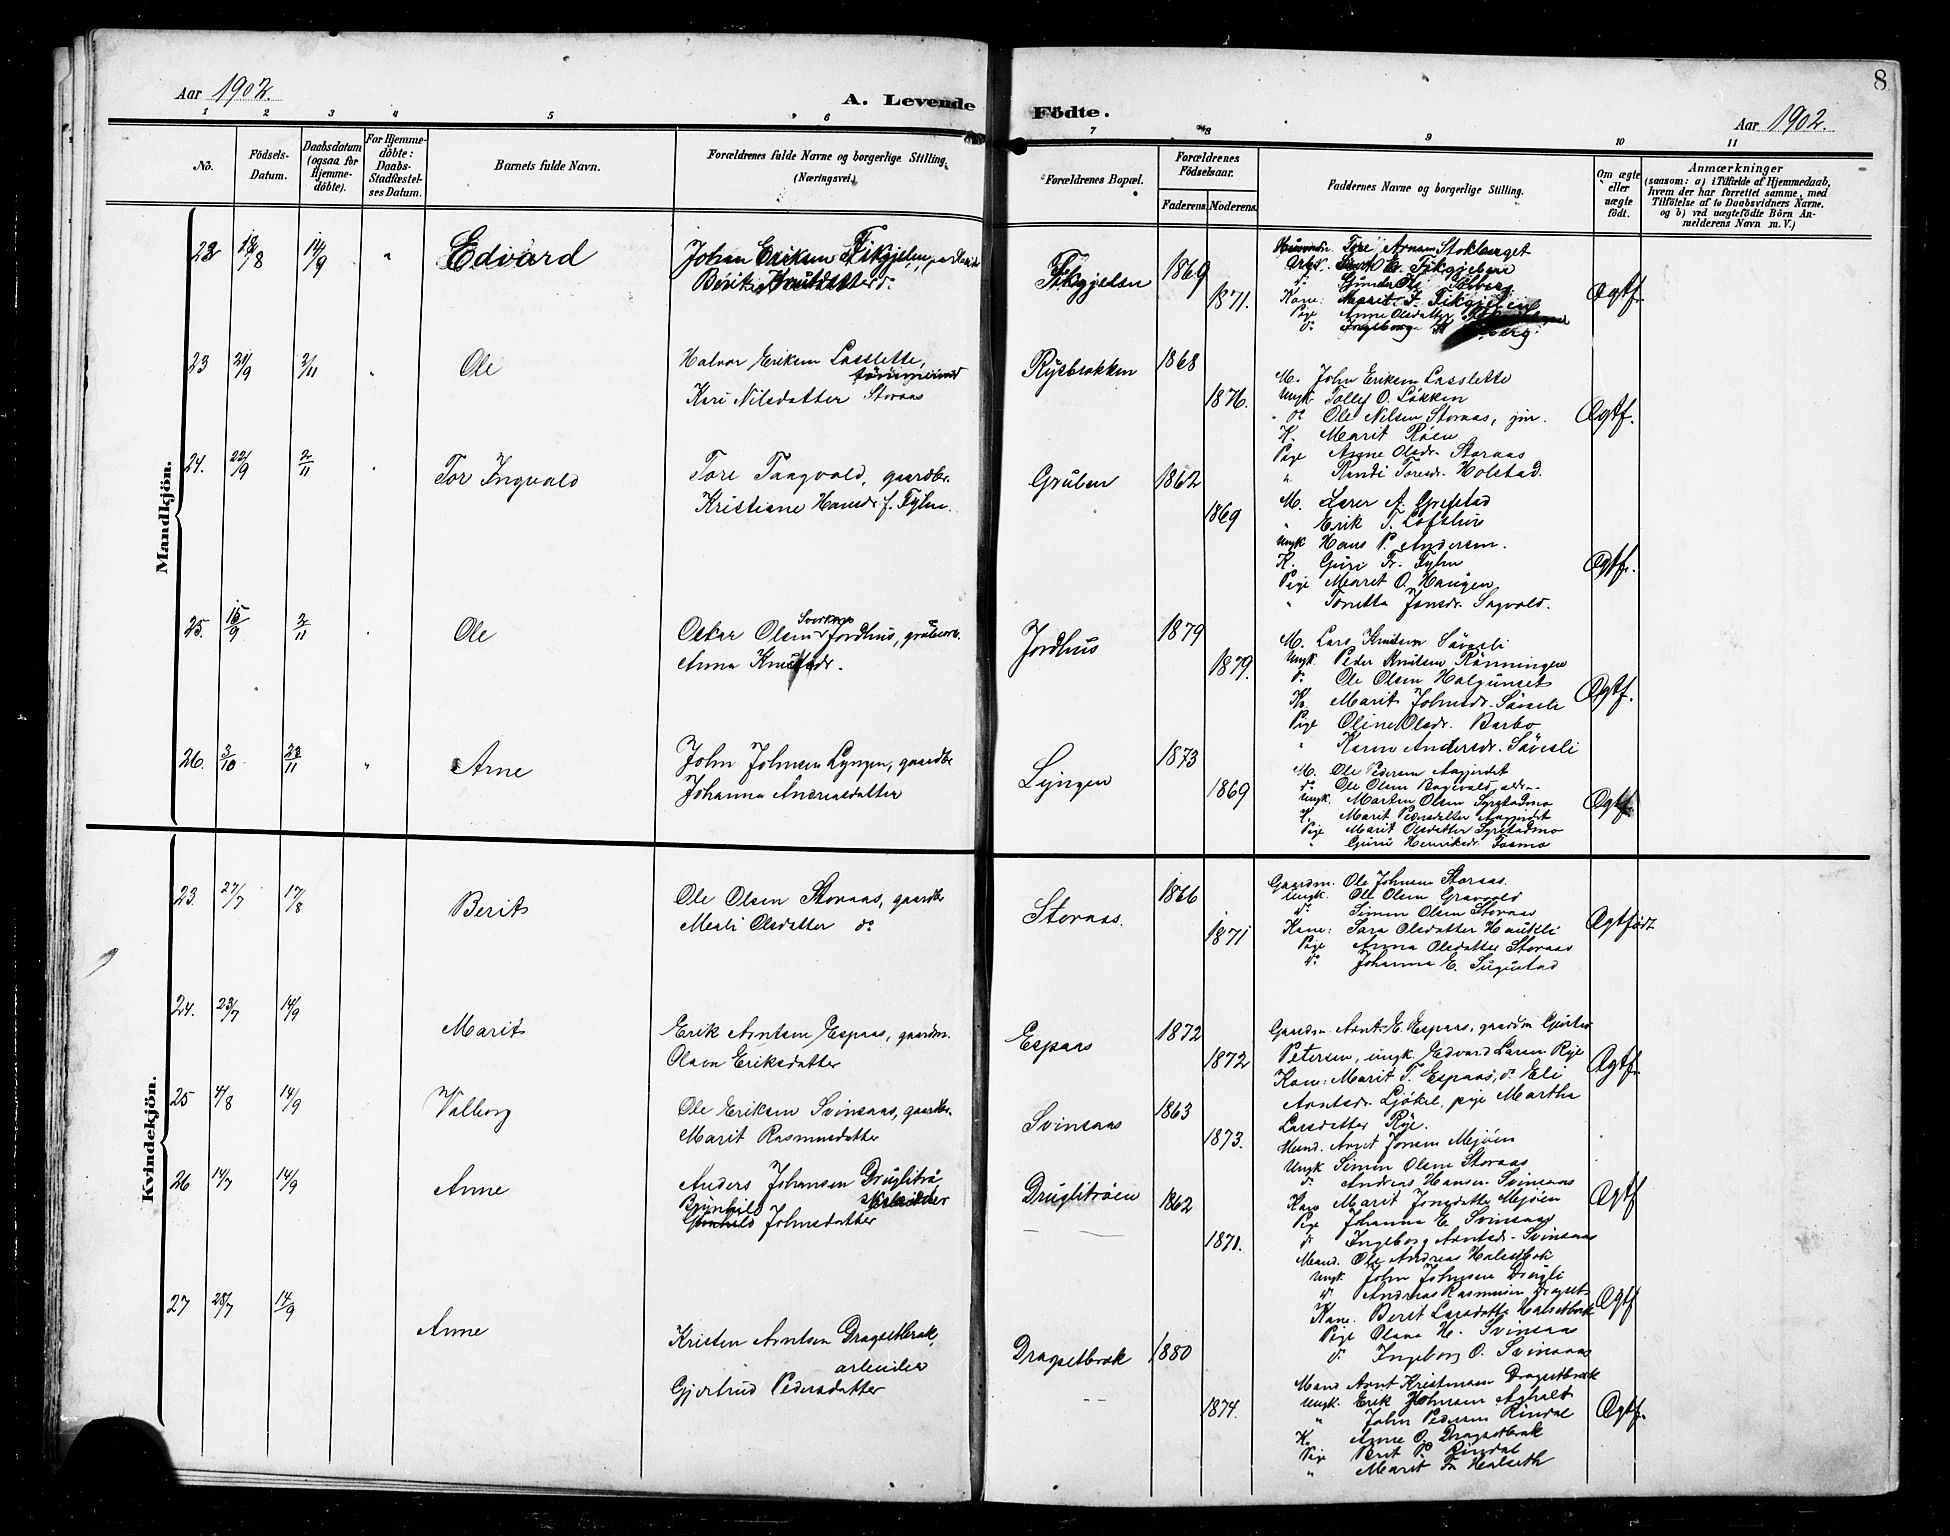 8
Aar 1902.
A. Levende Födte.
Aar 1902.
1 2 3 4 5 6 7 8 9 10 11
No.
Födsels-Datum.
Daabsdatum (ogsaa for Hjemmedöbte).
For Hjemmedöbte: Daabs-Stadfæstelses Datum.
Barnets fulde Navn.
Forældrenes fulde Navne og borgerlige Stilling.
(Næringsvei.)
Forældrenes Bopæl.
Forældrenes Födselsaar.
Faderens. Moderens.
Faddernes Navne og borgerlige Stilling.
Om ægte eller uægte födt.
Anmærkninger
(saasom: a) i Tilfælde af Hjemmedaab, hvem der har forrettet samme, med Tilföielse af to Daabsvidners Navne, og b) ved uægtefödte Börn Anmelderens Navn m. V.)
Mandkjön.
22 18/8 14/9 " Edvard
Johan Eriksen Fikgjelen
Berit Knutdatter do
Fikgjelen 1869
1871.
Tore Arnsen Stokberget
Kone: Marit J. Fikgjelen
Pige Anne Olsdatter
do Ingeborg
Ægtf.
23 21/9 2/11 " Ole
Halvor Eriksen Lasslette,
Kari Nilsdatter Storaas
Rysbrokken 1868
1876.
M. John Eriksen Lasslette
Ungk. Tollef O. Løkken
do Ole Nilsen Storaas, jun.
K. Marit Røen
Pige Anne Olsdr. Storaas
" Randi Toresdr. Holstad.
Ægtf.
24. 22/9 2/11 " Tor Ingvald
Tore Taagvold, gaardbr.
Kristiane Hansdr. f. Fylin.
Gruben 1862
1869
M. Larer A. Grefstad
" Erik T. Løfshus
Ungk Hans P. Andersen.
K. Guri Fr. Fylin
Pige Marit O. Haugen,
" Tonetta Jonsdr. Sagvold.
Ægtf.
25. 15/9 2/11 " Ole
Oskar Olsen Jordhus, grubearb.
Anna Knutsdr.
Jordhus 1879
1879.
M. Lars Knutsen Säveli
Ungk. Peder Knutsen Rønningen
do Ole Olsen Halgunset
K. Marit Johnsdr. Säveli
Pige Oline Olsdr. Barbo
" Karen Andersdr. Säveli
Ægtf.
26. 3/10 23/11 " Arne
John Johnsen Lyngen, gaardbr
Johanna Andreasdatter
Lyngen 1873
1869
M. Ole Pedersen Aagjerdet
do Ole Olsen Bagevold, ældre
Ungk. Marten Olsen Syrstadmo
K. Marit Pedersdatter Aagjerdet
Pige Marit Olsdatter Syrstadmo
" Guru Henriksdr. Fosmo
Ægtf.
Kvindekjön.
23. 27/7 17/8 Berit
Ole Olsen Storaas, gaardbr
Meali Olsdatter do
Storaas. 1866
1871
Gaardm. Ole Johnsen Storaas.
Ungk. Ole Olsen Gravvold
do Simen Olsen Storaas
Kone: Sara Olsdatter Haukli
Pige Anna Olsdatter Storaas
do Johanna E. Sugustad
Ægtfødt
24. 23/7 14/9 Marit
Erik Arntsen Espaas, gaardm.
Olava Eriksdatter
Espaas 1872
1872
Gaardm. Arnt E. Espaas, gaardm Gjerter
Petersen, ungk. Edvard Larsen Rye
Kon: Marit T. Espaas, do Eli
Arntsdr. Ljøkel, pige Martha
Larsdatter Rye.
Ægtf.
25 4/8 14/9 Valborg
Ole Eriksen Svinsaas, gaardbr.
Marit Rasmusdatter
Svinsaas 1863
1873.
Mand. Arnt Jonsen Mejöen
Ungk Simen Olsen Storaas
do Andreas Hansen Svinsaas
Kone Marit Jonsdatter Mejöen
Pige Johanna E. Svinsaas
do Ingeborg Arntsdr. Svinsaas
Ægtf
26 14/7 14/9 Anne
Anders Johansen Druglitrö
arbeider
Brynhild
Gunhild Johnsdatter
Druglitrøen 1862
1871.
Mand. Ole Andreas Halsetbak
Ungk. John Johnsen Drugli
do Andreas Rasmusen Dragset
Kone. Berit Larsdatter Halsetbak
Pige Olava H. Svinsaas
do Ingeborg O. Svinsaas
Ægtf
27 28/7 14/9 Anne
Kristen Arntsen Dragsetbak,
arbeider
Gjertrud Pedersdatter
Dragsetbak 1880
1874.
Mand Arnt Kristensen Dragsetbak
Ungk. Erik Johnsen Asholt
" John Pedersen Rindal
K. Anne O. Dragsetbak
Pige Berit P. Rindal
" Marit Fr. Halseth
Ægtf.